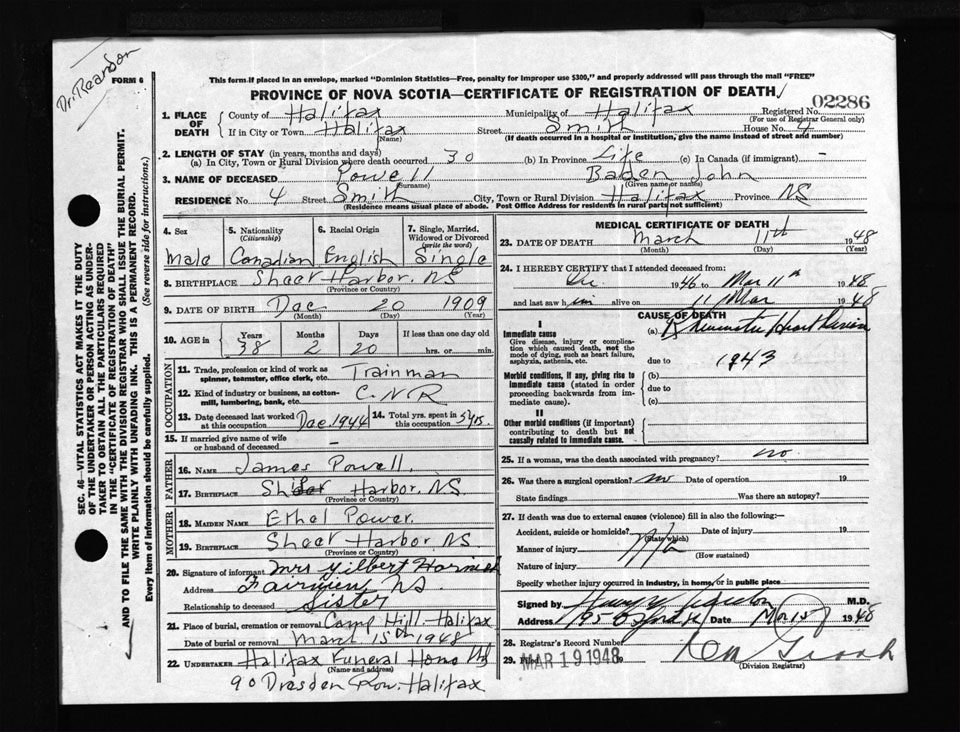 Dr. Reardon
FORM 6
This form if placed in an envelope, marked "Dominion Statistics—Free, penalty for improper use $300," and properly addressed will pass through the mail "FREE"
PROVINCE OF NOVA SCOTIA—CERTIFICATE OF REGISTRATION OF DEATH
02286
1. PLACE OF DEATH { County of Halifax Municipality of Halifax Registered No.
(For use of Registrar General only)
If in City or Town Halifax Street Smith House No. 4
(Name) (If death occurred in a hospital or institution, give the name instead of street and number)
2. LENGTH OF STAY (in years, months and days)
(a) In City, Town or Rural Division where death occurred 30 (b) In Province Life (c) In Canada (if immigrant) -
3. NAME OF DECEASED Powell Baden John
(Surname) (Given name or names)
RESIDENCE No. 4 Street Smith City, Town or Rural Division Halifax Province NS
(Residence means usual place of abode. Post Office Address for residents in rural parts not sufficient)
SEC. 46—VITAL STATISTICS ACT MAKES IT THE DUTY
OF THE UNDERTAKER OR PERSON ACTING AS UNDER-
TAKER TO OBTAIN ALL THE PARTICULARS REQUIRED
IN THE "CERTIFICATE OF REGISTRATION OF DEATH"
AND TO FILE THE SAME WITH THE DIVISION REGISTRAR WHO SHALL ISSUE THE BURIAL PERMIT.
WRITE PLAINLY WITH UNFADING INK. THIS IS A PERMANENT RECORD.
Every item of information should be carefully supplied. (See reverse side for instructions.)
4. Sex 5. Nationality (Citizenship) 6. Racial Origin 7. Single, Married, Widowed or Divorced (write the word)
Male Canadian English Single
8. BIRTHPLACE Sheet Harbor, NS
(Province or Country)
9. DATE OF BIRTH Dec 20 1909
(Month) (Day) (Year)
10. AGE in { Years Months Days If less than one day old
38 2 20 hrs. or min.
OCCUPATION
11. Trade, profession or kind of work as spinner, teamster, office clerk, etc. Trainman
12. Kind of industry or business, as cotton-mill, lumbering, bank, etc. C.N.R
13. Date deceased last worked at this occupation Dec. 1944 14. Total yrs. spent in this occupation 5 yrs.
15. If married give name of wife or husband of deceased -
FATHER
16. NAME James Powell.
17. BIRTHPLACE Sheet Harbor, NS.
(Province or Country)
MOTHER
18. MAIDEN NAME Ethel Power.
19. BIRTHPLACE Sheet Harbor NS
(Province or Country)
20. Signature of informant Mrs Gilbert Harnish
Address Fairview NS
Relationship to deceased Sister
21. Place of burial, cremation or removal Camp Hill. Halifax
Date of burial or removal March 15th 1948
22. UNDERTAKER Halifax Funeral Home Ltd
(Name and Address)
90 Dresden Row. Halifax
MEDICAL CERTIFICATE OF DEATH
23. DATE OF DEATH March 11th 1948
(Month) (Day) (Year)
24. I HEREBY CERTIFY that I attended deceased from:
1946 to Mar 11th 1948
and last saw him alive on 11 Mar 1948
CAUSE OF DEATH
I
Immediate cause
Give disease, injury or complication which caused death, not the mode of dying, such as heart failure, asphyxia, asthenia, etc.
(a) Rheumatic Heart Disease
due to 1943
Morbid conditions, if any, giving rise to immediate cause (stated in order proceeding backwards from immediate cause).
(b)
due to
(c)
II
Other morbid conditions (if important) contributing to death but not causally related to immediate cause.
25. If a woman, was the death associated with pregnancy? no.
26. Was there a surgical operation? no Date of operation 19
State findings Was there an autopsy?
27. If death was due to external causes (violence) fill in also the following:—
Accident, suicide or homicide? Date of injury 19
(State which)
Manner of injury N/a
(How sustained)
Nature of injury
Specify whether injury occurred in industry, in home, or in public place
Signed by M.D.
Address Date Mar 15 1948
28. Registrar's Record Number
29. Filed MAR 19 1948
(Division Registrar)